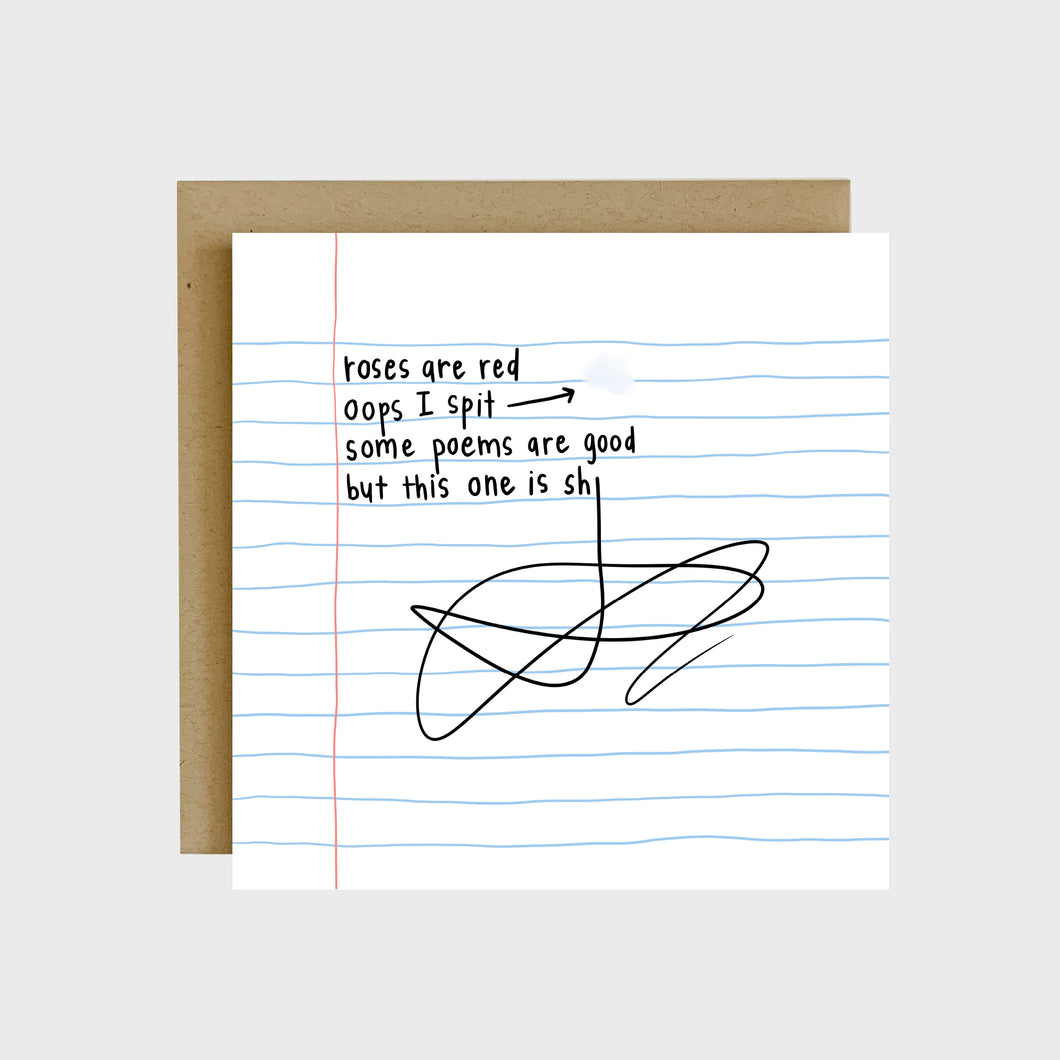 roses are red
oops I spit
some poems are good
but this one is sh